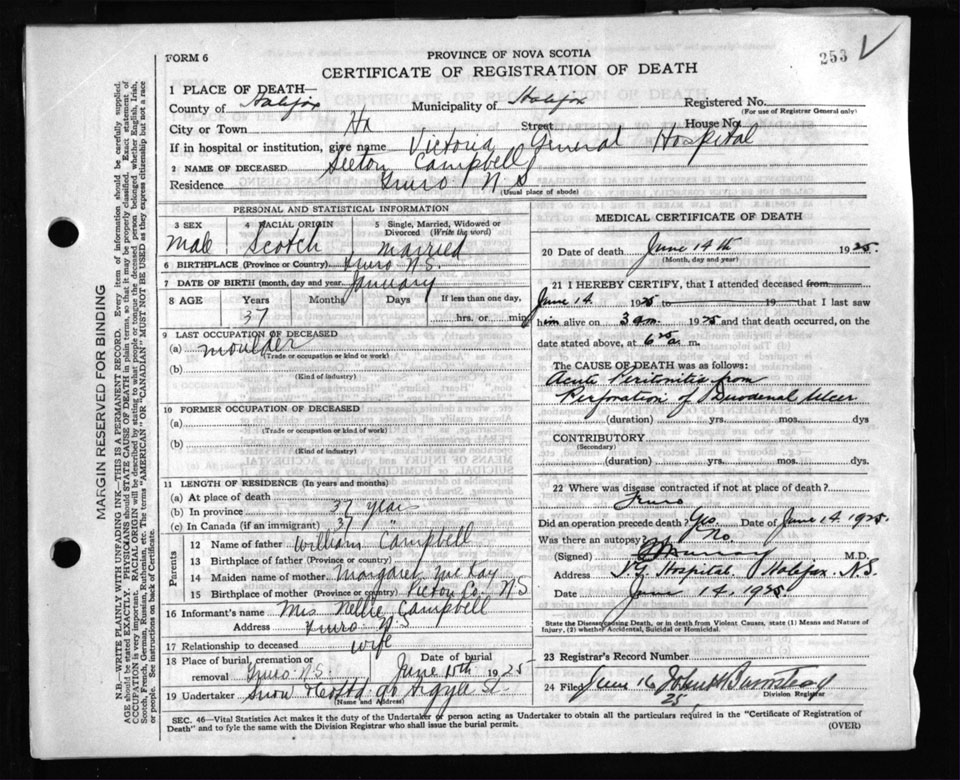 FORM 6
PROVINCE OF NOVA SCOTIA
253
CERTIFICATE OF REGISTRATION OF DEATH
1 PLACE OF DEATH—
County of Halifax Municipality of Halifax Registered No.
(For use of Registrar General only)
City or Town Hx Street House No.
If in hospital or institution, give name Victoria General Hospital
2 NAME OF DECEASED Seeton Campbell
Residence Truro N S
(Usual place of abode)
PERSONAL AND STATISTICAL INFORMATION
3 SEX Male
4 RACIAL ORIGIN Scotch
5 Single, Married, Widowed or Divorced (Write the word) Married
6 BIRTHPLACE (Province or Country) Truro N.S.
7 DATE OF BIRTH (month, day and year) January
8 AGE Years Months Days If less than one day,
37 hrs. or min.
9 LAST OCCUPATION OF DECEASED
(a) Moulder
(Trade or occupation or kind or work)
(b)
(Kind of industry)
10 FORMER OCCUPATION OF DECEASED
(a)
(Trade or occupation or kind of work)
(b)
(Kind of industry)
11 LENGTH OF RESIDENCE (In years and months)
(a) At place of death
(b) In province 37 years
(c) In Canada (if an immigrant) 37 "
Parents
12 Name of father William Campbell
13 Birthplace of father (Province or country)
14 Maiden name of mother Margaret McKay
15 Birthplace of mother (Province or country) Pictou Co. N S
16 Informant's name Mrs Nellie Campbell
Address Truro N.S.
17 Relationship to deceased wife
18 Place of burial, cremation or removal Truro N.S. Date of burial June 15th 1925
19 Undertaker Snow Argyle St.
(Name and Address)
MEDICAL CERTIFICATE OF DEATH
20 Date of death June 14th 1925
(Month, day and year)
21 I HEREBY CERTIFY, that I attended deceased from
June 14 1925 to 19 that I last saw
him alive on 3 am 1925 and that death occurred, on
the date stated above, at 6 a. m.
The CAUSE OF DEATH was as follows:
Acute Peritonitis from
Perforation of Duodenal Ulcer
(duration) yrs. mos. dys
CONTRIBUTORY
(Secondary)
(duration) yrs. mos. dys.
22 Where was disease contracted if not at place of death?
Truro
Did an operation precede death? Yes. Date of June 14. 1925.
Was there an autopsy? No.
(Signed) Murray M.D.
Address V G Hospital, Halifax N.S.
Date June 14. 1925.
State the Disease causing Death, or in death from Violent Causes, state (1) Means and Nature of Injury, (2) whether Accidental, Suicidal or Homicidal.
23 Registrar's Record Number
24 Filed June 16 25
Division Registrar
SEC. 46—Vital Statistics Act makes it the duty of the Undertaker or person acting as Undertaker to obtain all the particulars required in the "Certificate of Registration of
Death" and to fyle the same with the Division Registrar who shall issue the burial permit. (OVER)
MARGIN RESERVED FOR BINDING
N.B.—WRITE PLAINLY WITH UNFADING INK—THIS IS A PERMANENT RECORD. Every item of information should be carefully supplied.
AGE should be stated EXACTLY. PHYSICIANS should STATE CAUSE OF DEATH in plain terms, so that it may be properly classified. Exact statement of
OCCUPATION is very important. RACIAL ORIGIN will be described by stating to what people or tongue the deceased person belonged whether English, Irish,
Scotch, French, German, Russian, Ruthenian, etc. The terms "AMERICAN" OR "CANADIAN" MUST NOT BE USED as they express citizenship but not a race
or people. See instructions on back of Certificate.